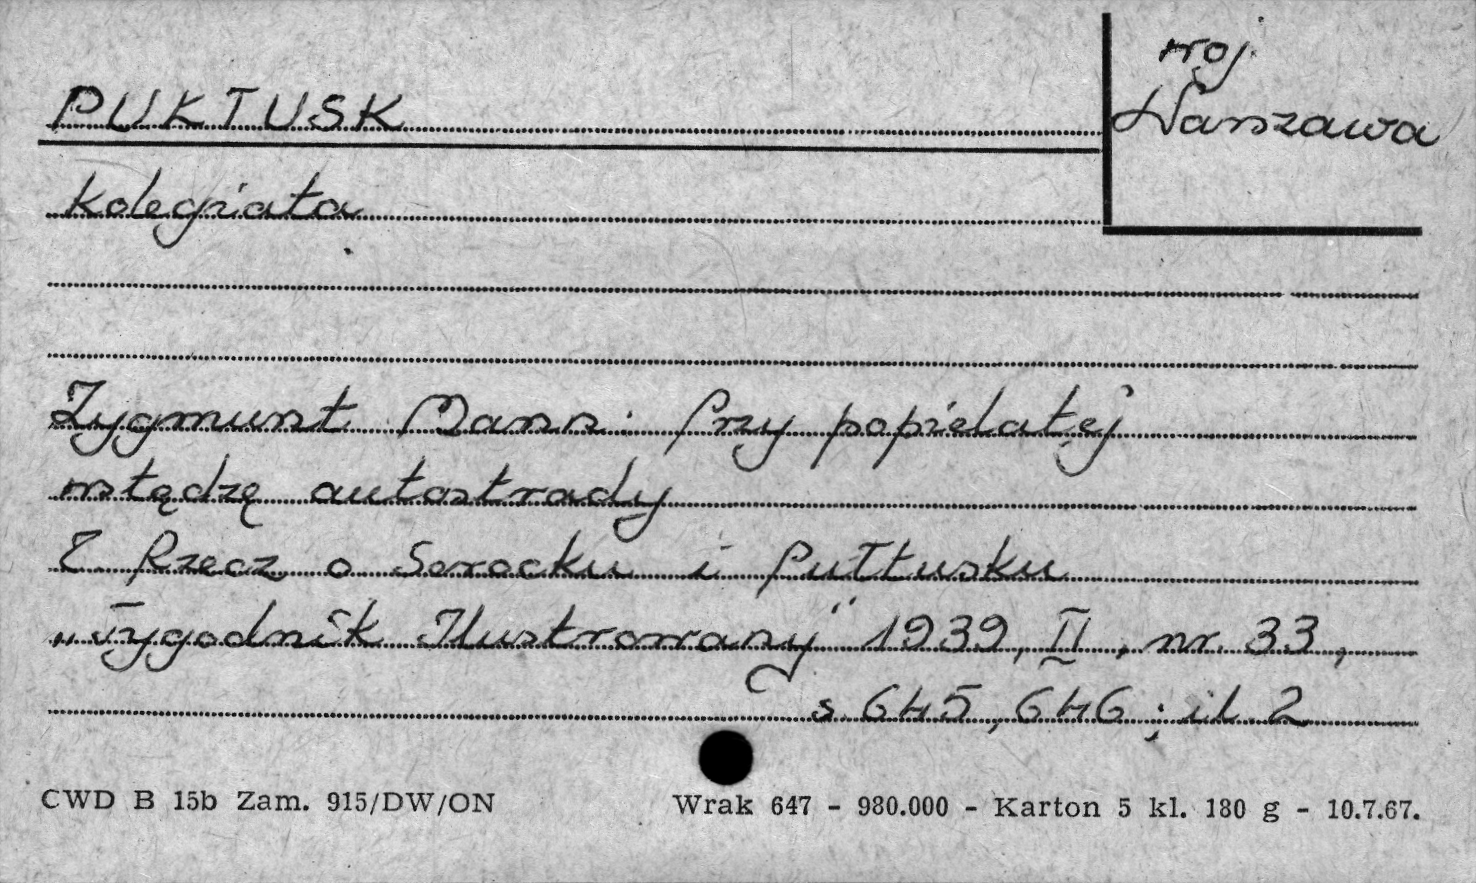 PUKTUSK
woj. Warszawa
Kolegiata
Zygmunt Mann: Przy popielatej
wstędzę autostrady
Z Rzecz o Serocku i Pułtusku
„Tygodnik Ilustrowany" 1939, II, nr. 33,
s. 645, 646; il. 2
CWD B 15b Zam. 915/DW/ON
Wrak 647 - 980.000 - Karton 5 kl. 180 g - 10.7.67.